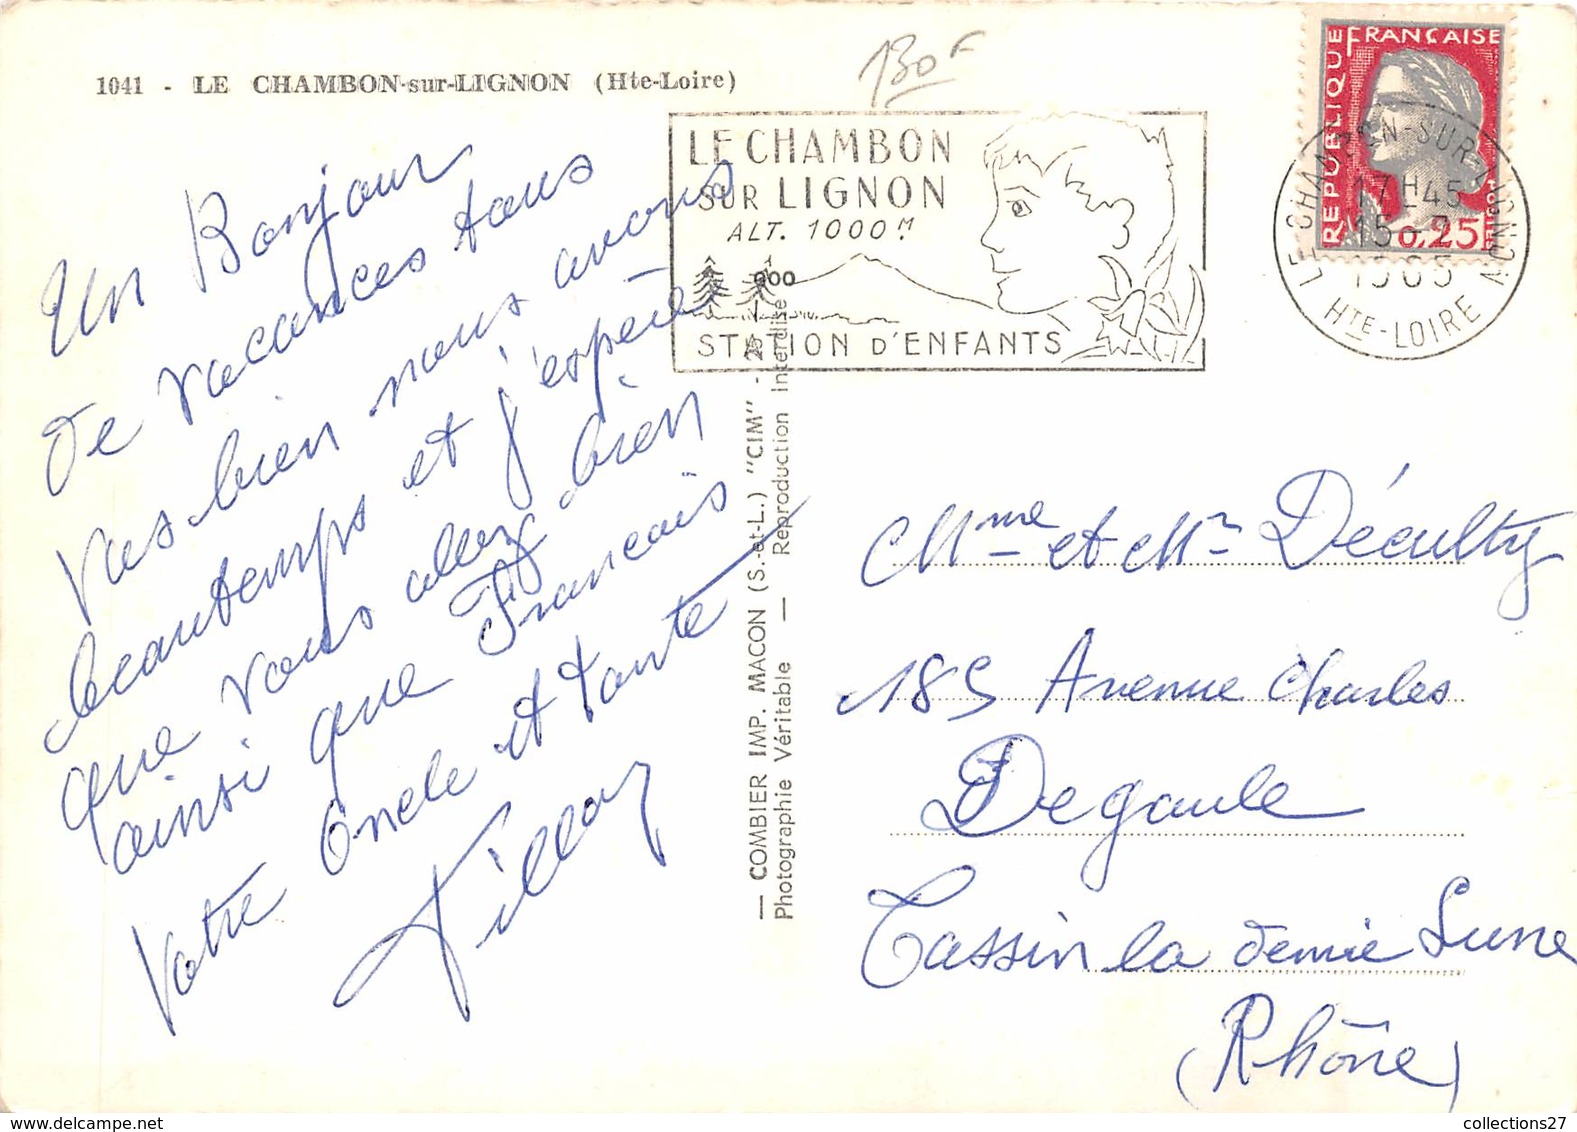 1041 - LE CHAMBON-sur-LIGNON (Hte-Loire)
130 F
LE CHAMBON
SUR LIGNON
ALT. 1000 M
STATION D'ENFANTS
REPUBLIQUE FRANÇAISE
0,25
LE CHAMBON-SUR-LIGNON
17 H 45
15-
HTE-LOIRE
Un Bonjour
de vacances tous
vas bien nous avons
beautemps et j'espère
que vous allez bien
ainsi que Francais
Votre Oncle et tante
— COMBIER IMP. MACON (S.-et-L.) "CIM" -
Photographie Véritable — Reproduction Interdite
Mme et Mr Décultÿ
185 Avenue Charles
Degaule
Tassin la demie Lune
(Rhône)
collections27